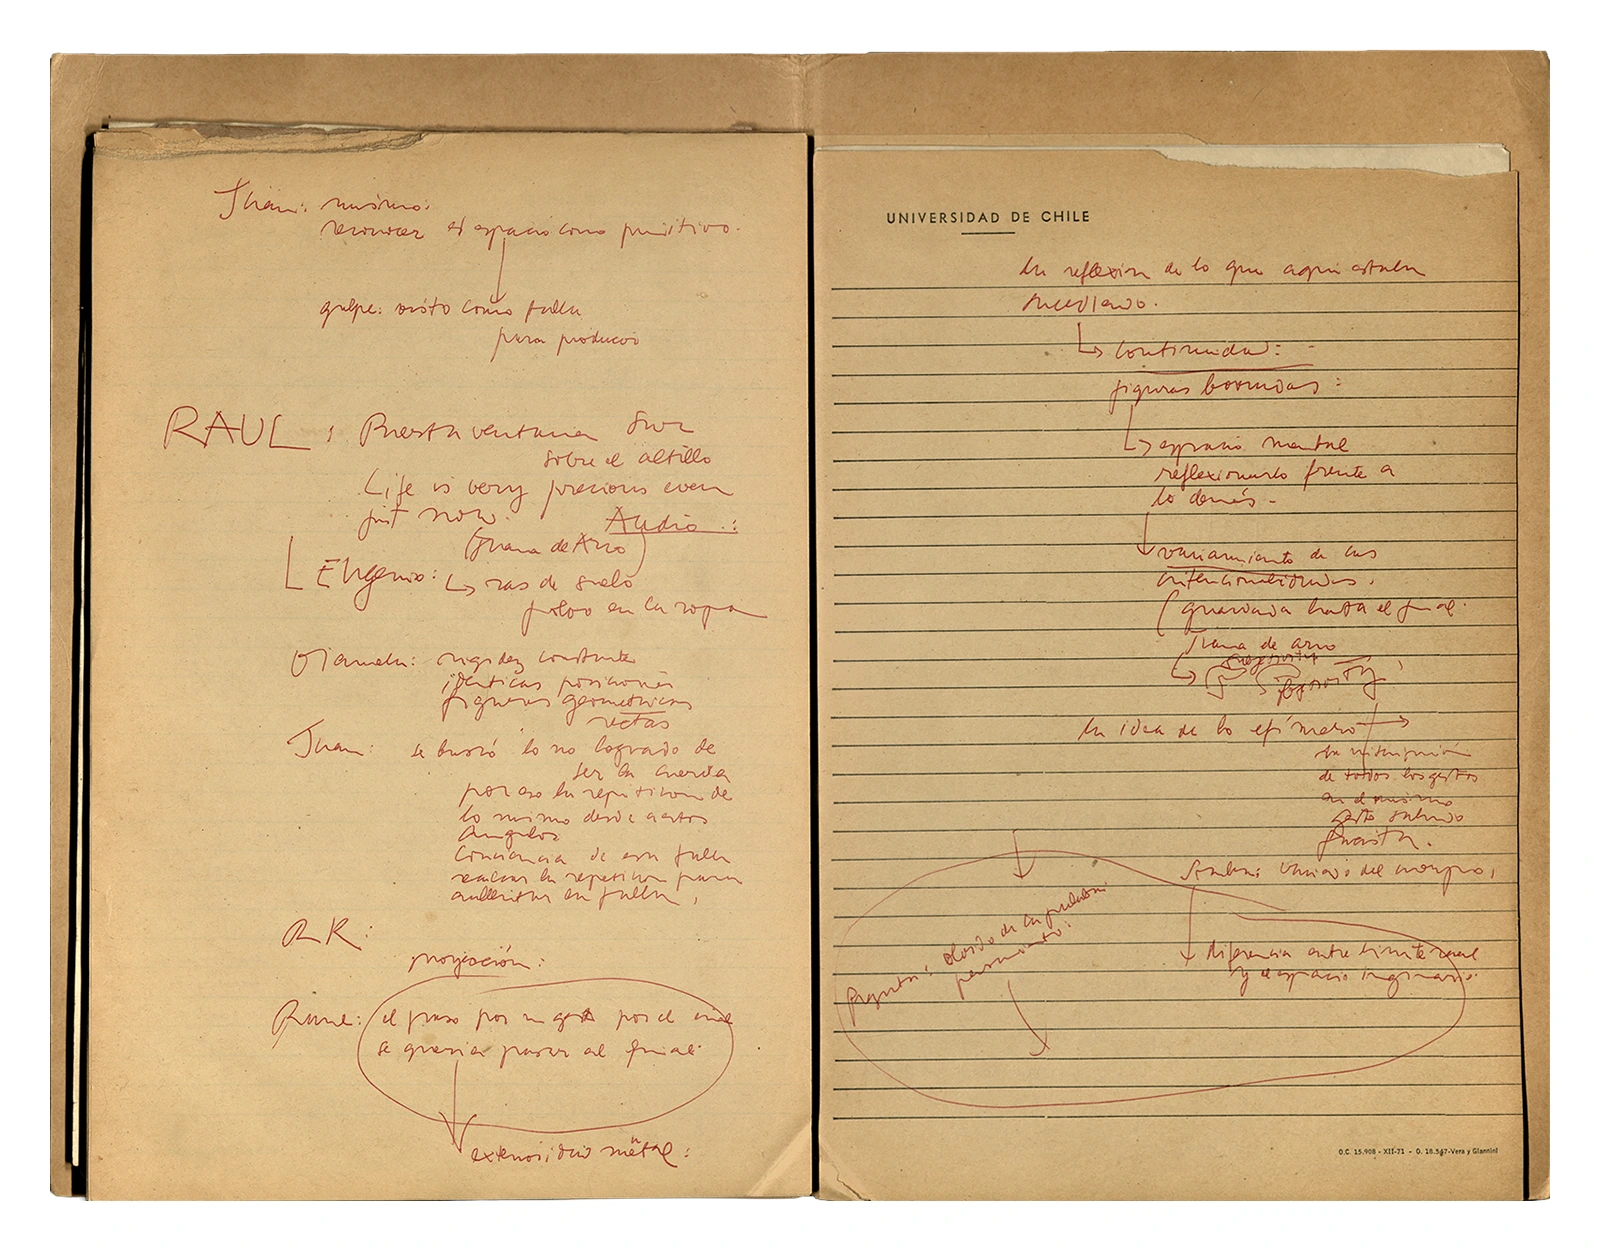 Juan: mismo:
reconocer el espacio como primitivo.
golpe: visto como falla
para producir
RAUL: Puesta ventana
sobre el altillo
Life is very precious even
just now.
Audio:
(Juana de Arco)
Eugenio: ↳ ras de suelo
polvo en la ropa
rigidez constante
identicas posiciones
figuras geometricas
rectas
Juan: se buscó lo no logrado de
ser la cuerda
por eso la repiticion de
lo mismo desde
Angulos
Conciencia de esa falla
la repeticion para
en falla,
RK:
proyección:
Raul: el paso por un gesto por el cual
se queria pasar al final.
mental:
UNIVERSIDAD DE CHILE
la reflexion de lo que aqui estaba
sucediendo.
↳ continuidad:
figuras borradas:
↳ espacio mental
reflexionando frente a
lo demás -
de las
intencionalidades.
(guardada hasta el final.
Juana de arco
la idea de lo efímero →
de todos los gestos
en el mismo
gesto
del cuerpo,
↓ diferencia entre limite real
y el espacio imaginario.
olvido de la
O.C. 15.908 - XII-71 - O. 18.567-Vera y Giannini